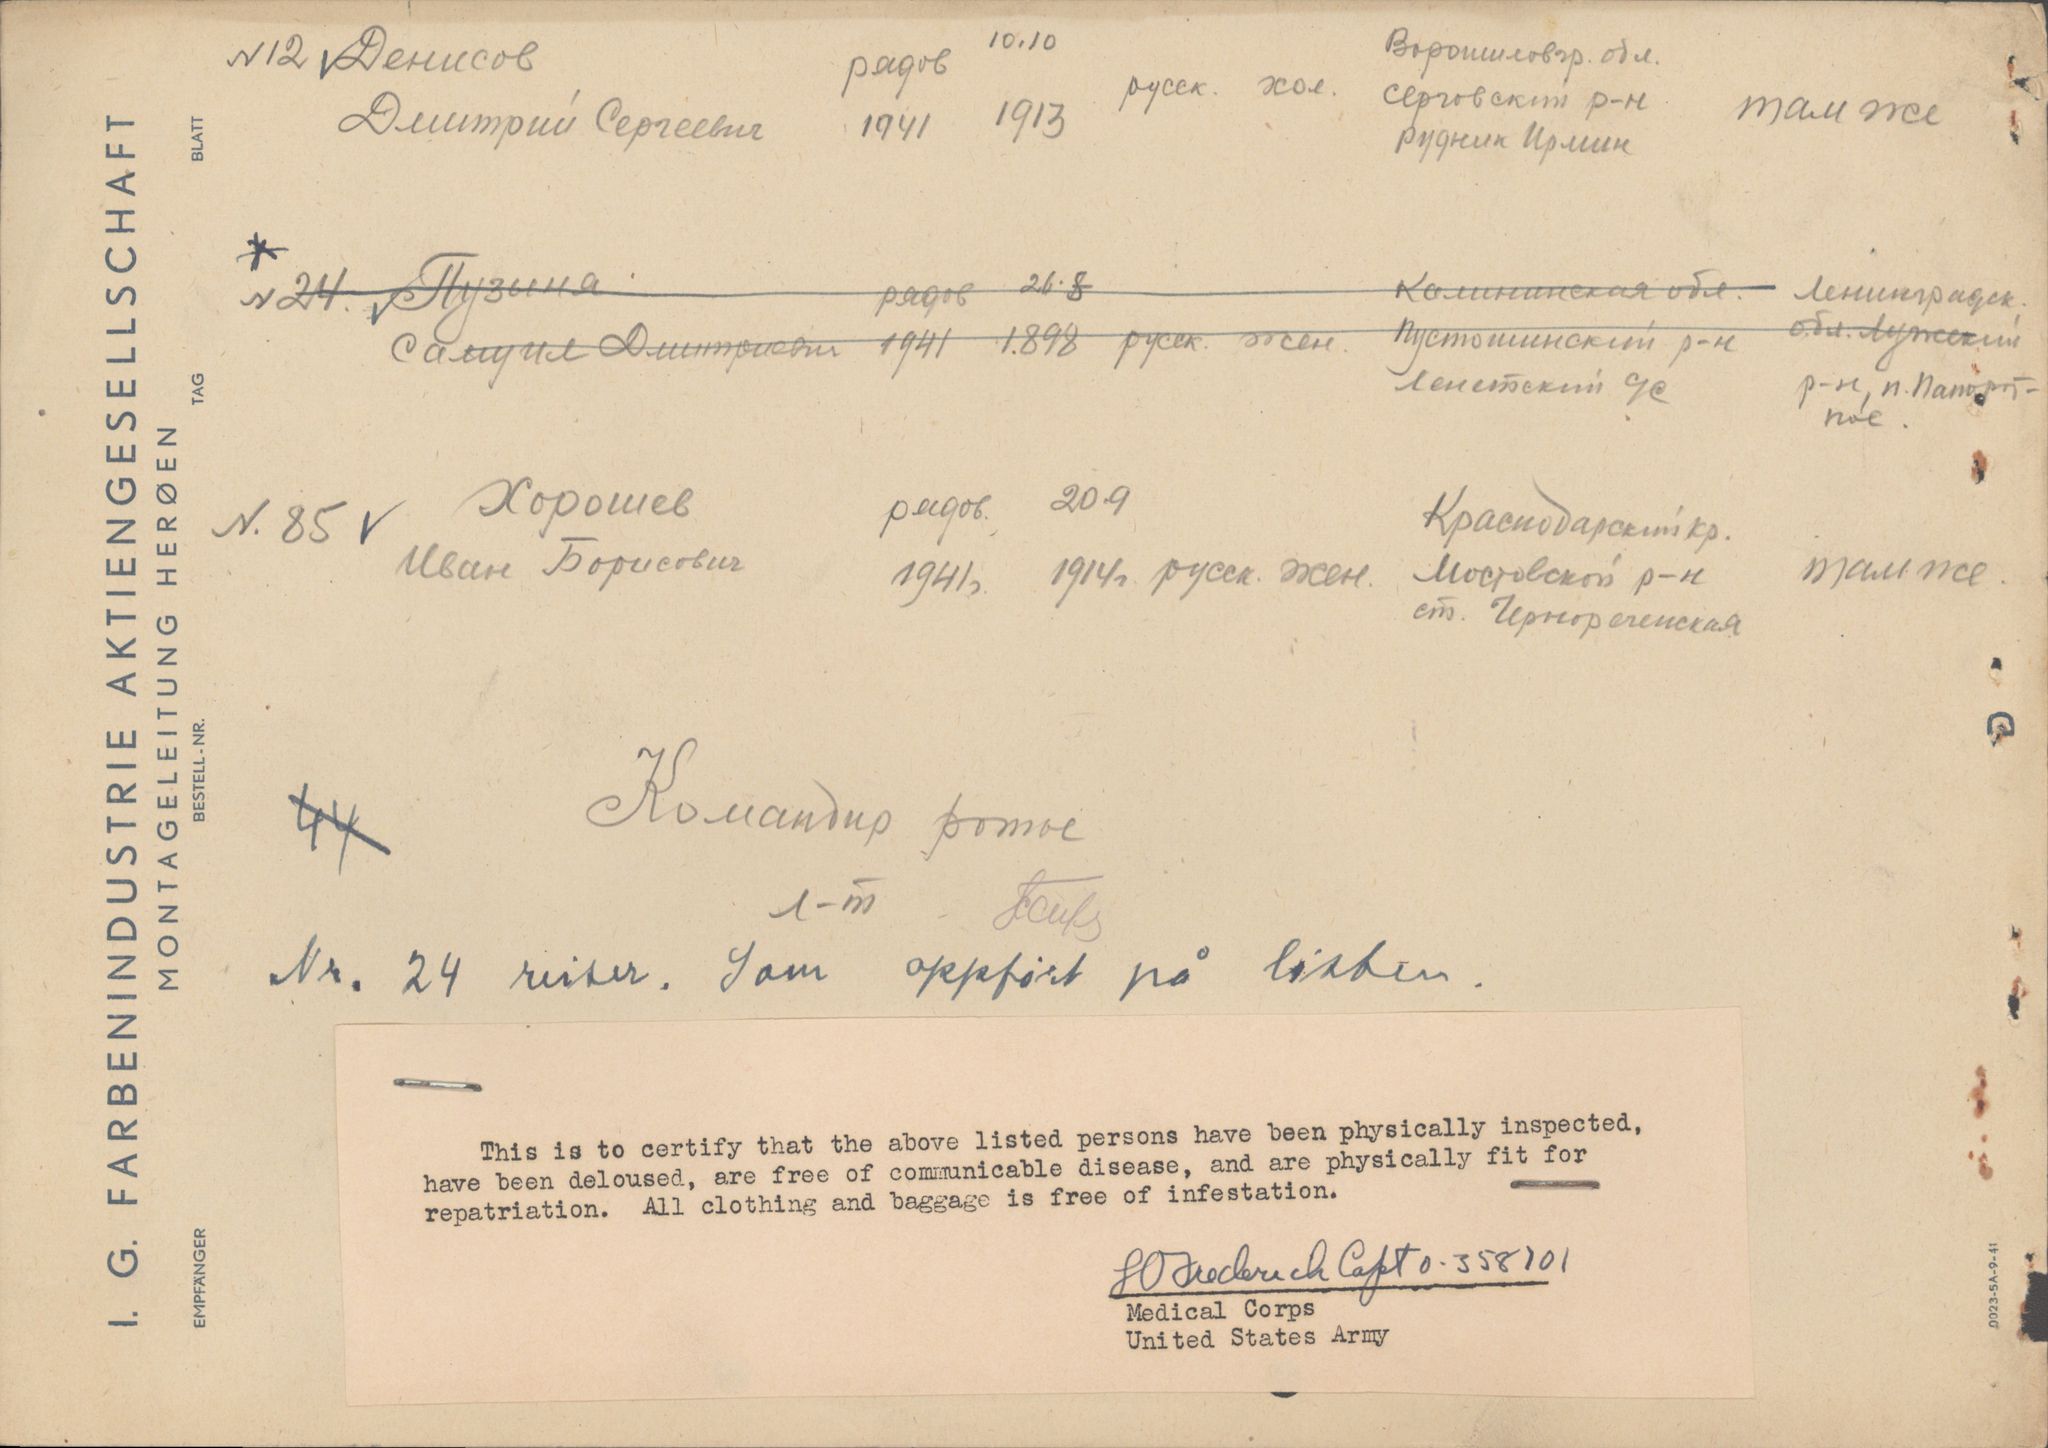 I. G. FARBENINDUSTRIE AKTIENGESELLSCHAFT
MONTAGELEITUNG HERØEN
EMPFÄNGER BESTELL-NR. TAG BLATT
N12 √ Денисов рядов 10.10 Ворошиловгр. обл.
Дмитрий Сергеевич 1941 1913 русск. хол. Серговский р-н там же
рудник Ирмин
*
N 24. √ Пузыня рядов 26.8 Калининская обл. Ленинградск.
Самуил Дмитриевич 1941 1.898 русск. жен. Пустошинский р-н обл. Лужский
р-н, п. Папорт-
ное.
N. 85 √ Хорошев рядов. 20.9 Краснодарский кр.
Иван Борисович 1941г. 1914г. русск. жен. Мостовской р-н там же.
ст. Чернореченская
44
Командир роты
л-т
Nr. 24 reiser. Som oppført på listen.
This is to certify that the above listed persons have been physically inspected,
have been deloused, are free of communicable disease, and are physically fit for
repatriation. All clothing and baggage is free of infestation.
Frederick Capt 0-358701
Medical Corps
United States Army
0023-5A-9-41